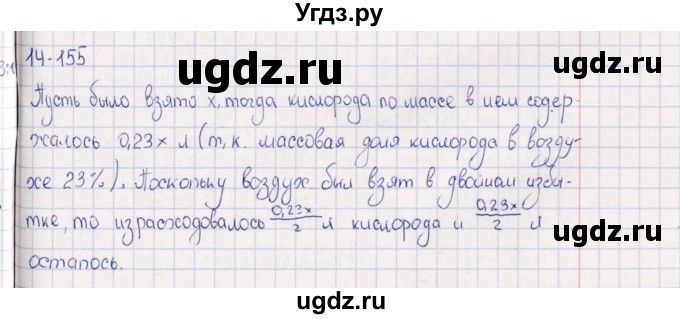 Угдз.ру
ugdz.ru
14-155
Пусть было взято x, тогда кислорода по массе в нем содер-
жалось 0,23x л (т.к. массовая доля кислорода в возду-
ugdz.ru
хе 23%). Поскольку воздух был взят в двойном избы-
тке, то израсходовалось 0,23x/2 л кислорода и 0,23x/2 л
осталось.
ugdz.ru
ugdz.ru